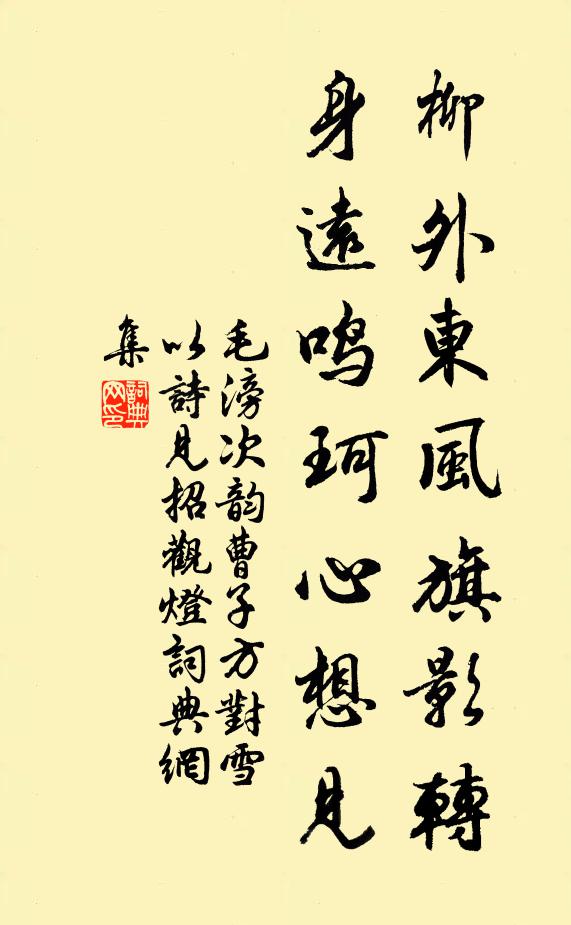 柳外東風旗影轉
身遠鸣珂心想見
毛滂次韵曹子方對雪
以詩見招觀燈詞典網
集
詞典
网印